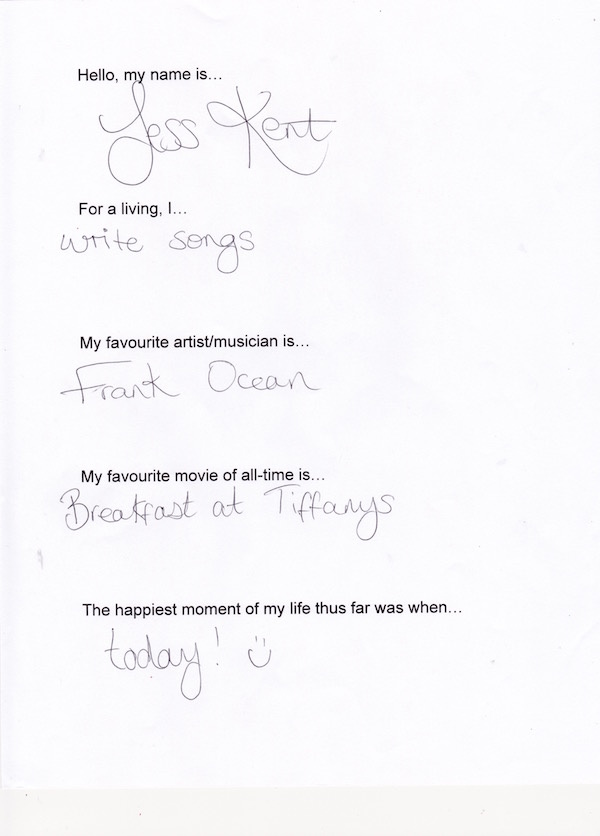 Hello, my name is…
Jess Kent
For a living, I…
write songs
My favourite artist/musician is…
Frank Ocean
My favourite movie of all-time is…
Breakfast at Tiffanys
The happiest moment of my life thus far was when…
today! :)